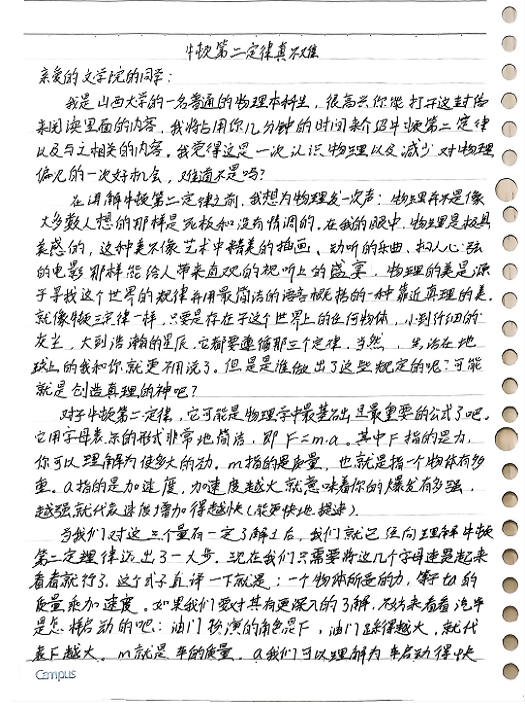 牛顿第二定律真不难
亲爱的文学院的同学：
我是山西大学的一名普通的物理本科生，很高兴你能打开这封信
来阅读里面的内容，我将占用你几分钟的时间来介绍牛顿第二定律
以及与之相关的内容。我觉得这是一次认识物理以及减少对物理
偏见的一次好机会，难道不是吗？
在讲解牛顿第二定律之前，我想为物理发一次声：物理并不是像
大多数人想的那样是死板和没有情调的。在我的眼中，物理是极具
美感的，这种美不像艺术中精美的插画、动听的乐曲、扣人心弦
的电影那样能给人带来直观的视听上的盛宴，物理的美是源
于寻找这个世界的规律并用最简洁的语言概括的一种靠近真理的美。
就像牛顿三定律一样，只要是存在于这个世界上的任何物体，小到仔细的
灰尘，大到浩瀚的星辰，它都要遵循那三个定律，当然，生活在地
球上的我和你就更不用说了。但是是谁做出了这些规定的呢？可能
就是创造真理的神吧？
对于牛顿第二定律，它可能是物理学中最基础也是最重要的公式了吧。
它用字母表示的形式非常地简洁，即F=m·a。其中F指的是力，
你可以理解为使多大的劲。m指的是质量，也就是指一个物体有多
重。a指的是加速度，加速度越大就意味着你的爆发有多强，
越强就代表速度增加得越快（能更快地提速）
当我们对这三个量有一定了解之后，我们就已经向理解牛顿
第二定理律迈出了一大步。现在我们只需要将这几个字母连起来
看看就行了，这个式子直译一下就是：一个物体所受的力，等于它的
质量乘加速度。如果我们要对其有更深入的了解，不妨来看看汽车
是怎样启动的吧：油门扮演的角色是F，油门踩得越大，就代
表F越大。m就是车的质量。a我们可以理解为车启动得快
Campus